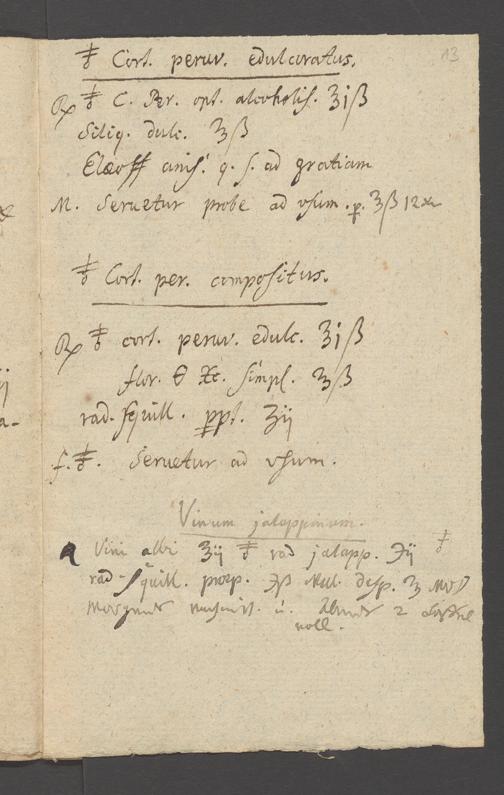 13
♁ Cort. peruv. edulcoratus.
℞ ♁ C. Per. opt. alcoholis. ʒiß
Siliq. dulc. ʒß
Elæoss anis. q. s. ad gratiam
M. Servetur probe ad vsum. p. ʒß 12
♁ Cort. per. compositus.
℞ ♁ cort. peruv. edulc. ʒiß
flor. simpl. ʒß
rad. squill. ppt. ʒij
f. ♁. Servetur ad vsum.
Vinum jalappinum.
Vini albi ʒij ♁ rad jalapp. ℈ij
rad squill. praep. ℈ß
Morgens u. Abends 2
voll.